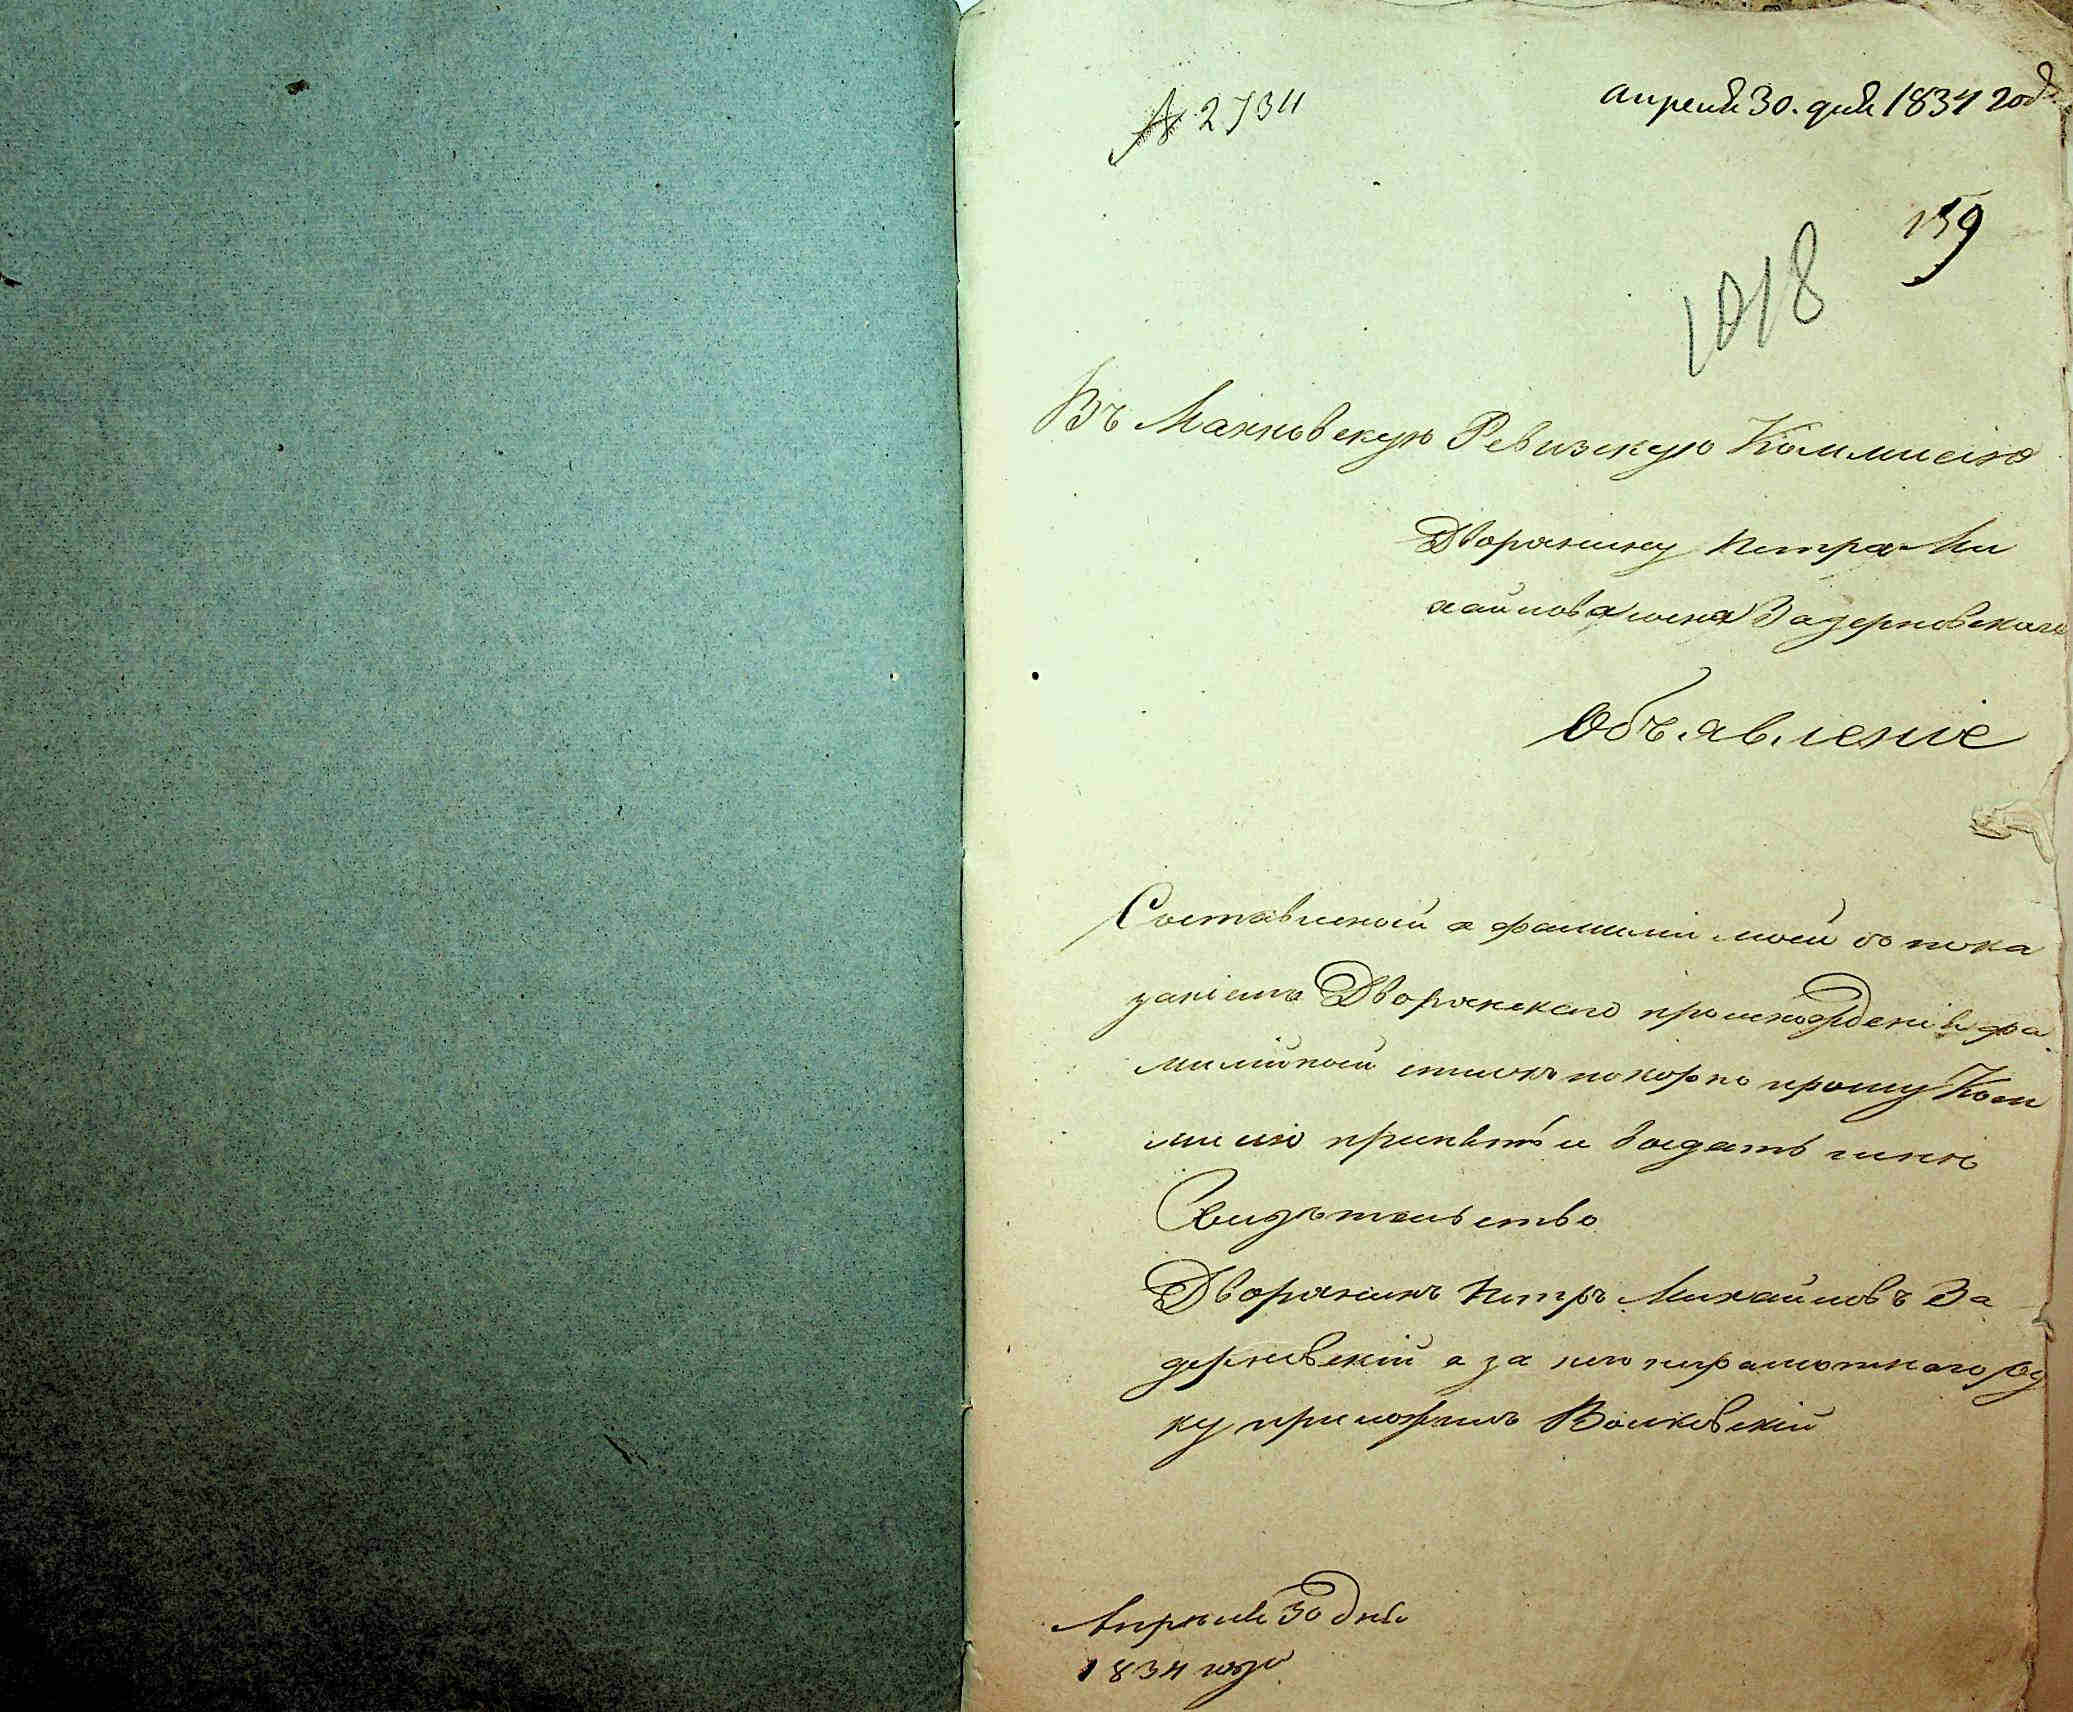 № 2734
апреля 30. дня 1834 года
159
1018
Въ Ревизскую Коммисію
Дворянину Петра Ми
хайлова сына Задерновскаго
Объявленіе
Составленой о фамиліи моей со пока
заніемъ Дворянскаго происхожденія фа
милійной списокъ покорно прошу Ком
мисію принять и выдать мнѣ
Свидѣтельство
Дворянинъ Петръ Михайловъ За
дерновскій а за него неграмотнаго ру
ку приложилъ Волковскій
Апрѣля 30 дня
1834 года